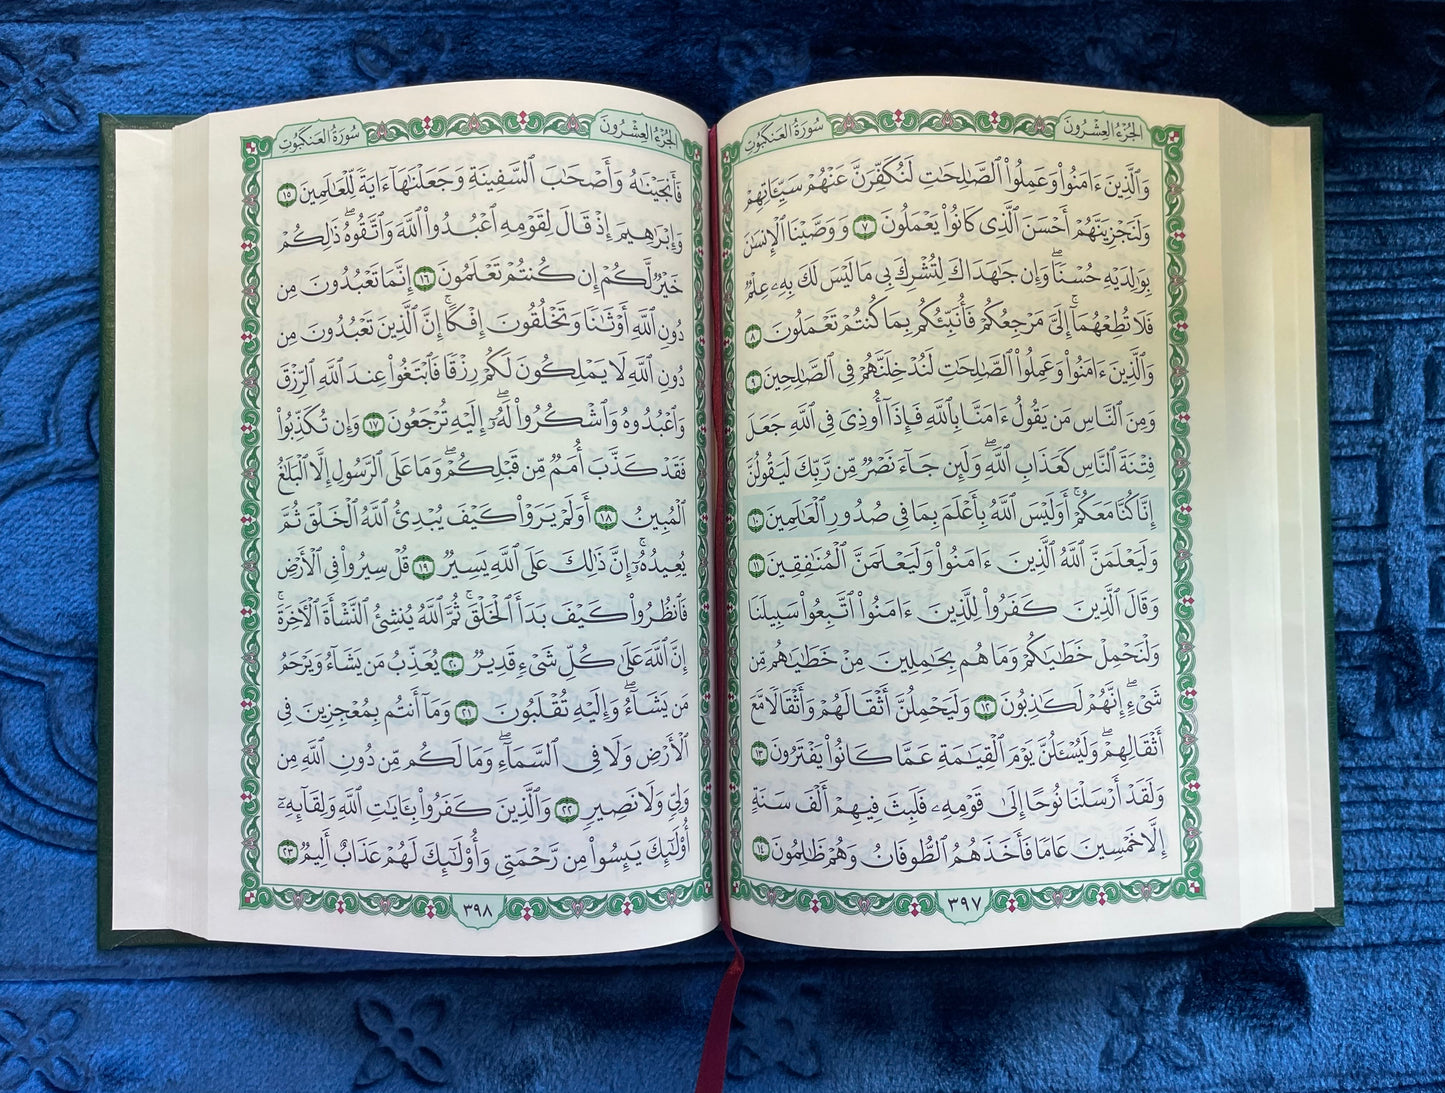 الجُزْءُ العِشْرُونَ
سُورَةُ العَنكَبُوتِ
وَٱلَّذِينَ ءَامَنُواْ وَعَمِلُواْ ٱلصَّٰلِحَٰتِ لَنُكَفِّرَنَّ عَنْهُمْ سَيِّـَٔاتِهِمْ
وَلَنَجْزِيَنَّهُمْ أَحْسَنَ ٱلَّذِى كَانُواْ يَعْمَلُونَ ٧ وَوَصَّيْنَا ٱلْإِنسَٰنَ
بِوَٰلِدَيْهِ حُسْنًاۖ وَإِن جَٰهَدَاكَ لِتُشْرِكَ بِى مَا لَيْسَ لَكَ بِهِۦ عِلْمٌ
فَلَا تُطِعْهُمَآۚ إِلَىَّ مَرْجِعُكُمْ فَأُنَبِّئُكُم بِمَا كُنتُمْ تَعْمَلُونَ ٨
وَٱلَّذِينَ ءَامَنُواْ وَعَمِلُواْ ٱلصَّٰلِحَٰتِ لَنُدْخِلَنَّهُمْ فِى ٱلصَّٰلِحِينَ ٩
وَمِنَ ٱلنَّاسِ مَن يَقُولُ ءَامَنَّا بِٱللَّهِ فَإِذَآ أُوذِىَ فِى ٱللَّهِ جَعَلَ
فِتْنَةَ ٱلنَّاسِ كَعَذَابِ ٱللَّهِۖ وَلَئِن جَآءَ نَصْرٌ مِّن رَّبِّكَ لَيَقُولُنَّ
إِنَّا كُنَّا مَعَكُمْۚ أَوَلَيْسَ ٱللَّهُ بِأَعْلَمَ بِمَا فِى صُدُورِ ٱلْعَٰلَمِينَ ١٠
وَلَيَعْلَمَنَّ ٱللَّهُ ٱلَّذِينَ ءَامَنُواْ وَلَيَعْلَمَنَّ ٱلْمُنَٰفِقِينَ ١١
وَقَالَ ٱلَّذِينَ كَفَرُواْ لِلَّذِينَ ءَامَنُواْ ٱتَّبِعُواْ سَبِيلَنَا
وَلْنَحْمِلْ خَطَٰيَٰكُمْ وَمَا هُم بِحَٰمِلِينَ مِنْ خَطَٰيَٰهُم مِّن
شَىْءٍۖ إِنَّهُمْ لَكَٰذِبُونَ ١٢ وَلَيَحْمِلُنَّ أَثْقَالَهُمْ وَأَثْقَالًا مَّعَ
أَثْقَالِهِمْۖ وَلَيُسْـَٔلُنَّ يَوْمَ ٱلْقِيَٰمَةِ عَمَّا كَانُواْ يَفْتَرُونَ ١٣
وَلَقَدْ أَرْسَلْنَا نُوحًا إِلَىٰ قَوْمِهِۦ فَلَبِثَ فِيهِمْ أَلْفَ سَنَةٍ
إِلَّا خَمْسِينَ عَامًا فَأَخَذَهُمُ ٱلطُّوفَانُ وَهُمْ ظَٰلِمُونَ ١٤
٣٩٧
الجُزْءُ العِشْرُونَ
سُورَةُ العَنكَبُوتِ
فَأَنجَيْنَٰهُ وَأَصْحَٰبَ ٱلسَّفِينَةِ وَجَعَلْنَٰهَآ ءَايَةً لِّلْعَٰلَمِينَ ١٥
وَإِبْرَٰهِيمَ إِذْ قَالَ لِقَوْمِهِ ٱعْبُدُواْ ٱللَّهَ وَٱتَّقُوهُۖ ذَٰلِكُمْ
خَيْرٌ لَّكُمْ إِن كُنتُمْ تَعْلَمُونَ ١٦ إِنَّمَا تَعْبُدُونَ مِن
دُونِ ٱللَّهِ أَوْثَٰنًا وَتَخْلُقُونَ إِفْكًاۚ إِنَّ ٱلَّذِينَ تَعْبُدُونَ مِن
دُونِ ٱللَّهِ لَا يَمْلِكُونَ لَكُمْ رِزْقًا فَٱبْتَغُواْ عِندَ ٱللَّهِ ٱلرِّزْقَ
وَٱعْبُدُوهُ وَٱشْكُرُواْ لَهُۥٓۖ إِلَيْهِ تُرْجَعُونَ ١٧ وَإِن تُكَذِّبُواْ
فَقَدْ كَذَّبَ أُمَمٌ مِّن قَبْلِكُمْۖ وَمَا عَلَى ٱلرَّسُولِ إِلَّا ٱلْبَلَٰغُ
ٱلْمُبِينُ ١٨ أَوَلَمْ يَرَوْاْ كَيْفَ يُبْدِئُ ٱللَّهُ ٱلْخَلْقَ ثُمَّ
يُعِيدُهُۥٓۚ إِنَّ ذَٰلِكَ عَلَى ٱللَّهِ يَسِيرٌ ١٩ قُلْ سِيرُواْ فِى ٱلْأَرْضِ
فَٱنظُرُواْ كَيْفَ بَدَأَ ٱلْخَلْقَۚ ثُمَّ ٱللَّهُ يُنشِئُ ٱلنَّشْأَةَ ٱلْأَخِرَةَۚ
إِنَّ ٱللَّهَ عَلَىٰ كُلِّ شَىْءٍ قَدِيرٌ ٢٠ يُعَذِّبُ مَن يَشَآءُ وَيَرْحَمُ
مَن يَشَآءُۖ وَإِلَيْهِ تُقْلَبُونَ ٢١ وَمَآ أَنتُم بِمُعْجِزِينَ فِى
ٱلْأَرْضِ وَلَا فِى ٱلسَّمَآءِۖ وَمَا لَكُم مِّن دُونِ ٱللَّهِ مِن
وَلِىٍّ وَلَا نَصِيرٍ ٢٢ وَٱلَّذِينَ كَفَرُواْ بِـَٔايَٰتِ ٱللَّهِ وَلِقَآئِهِۦٓ
أُوْلَٰٓئِكَ يَئِسُواْ مِن رَّحْمَتِى وَأُوْلَٰٓئِكَ لَهُمْ عَذَابٌ أَلِيمٌ ٢٣
٣٩٨